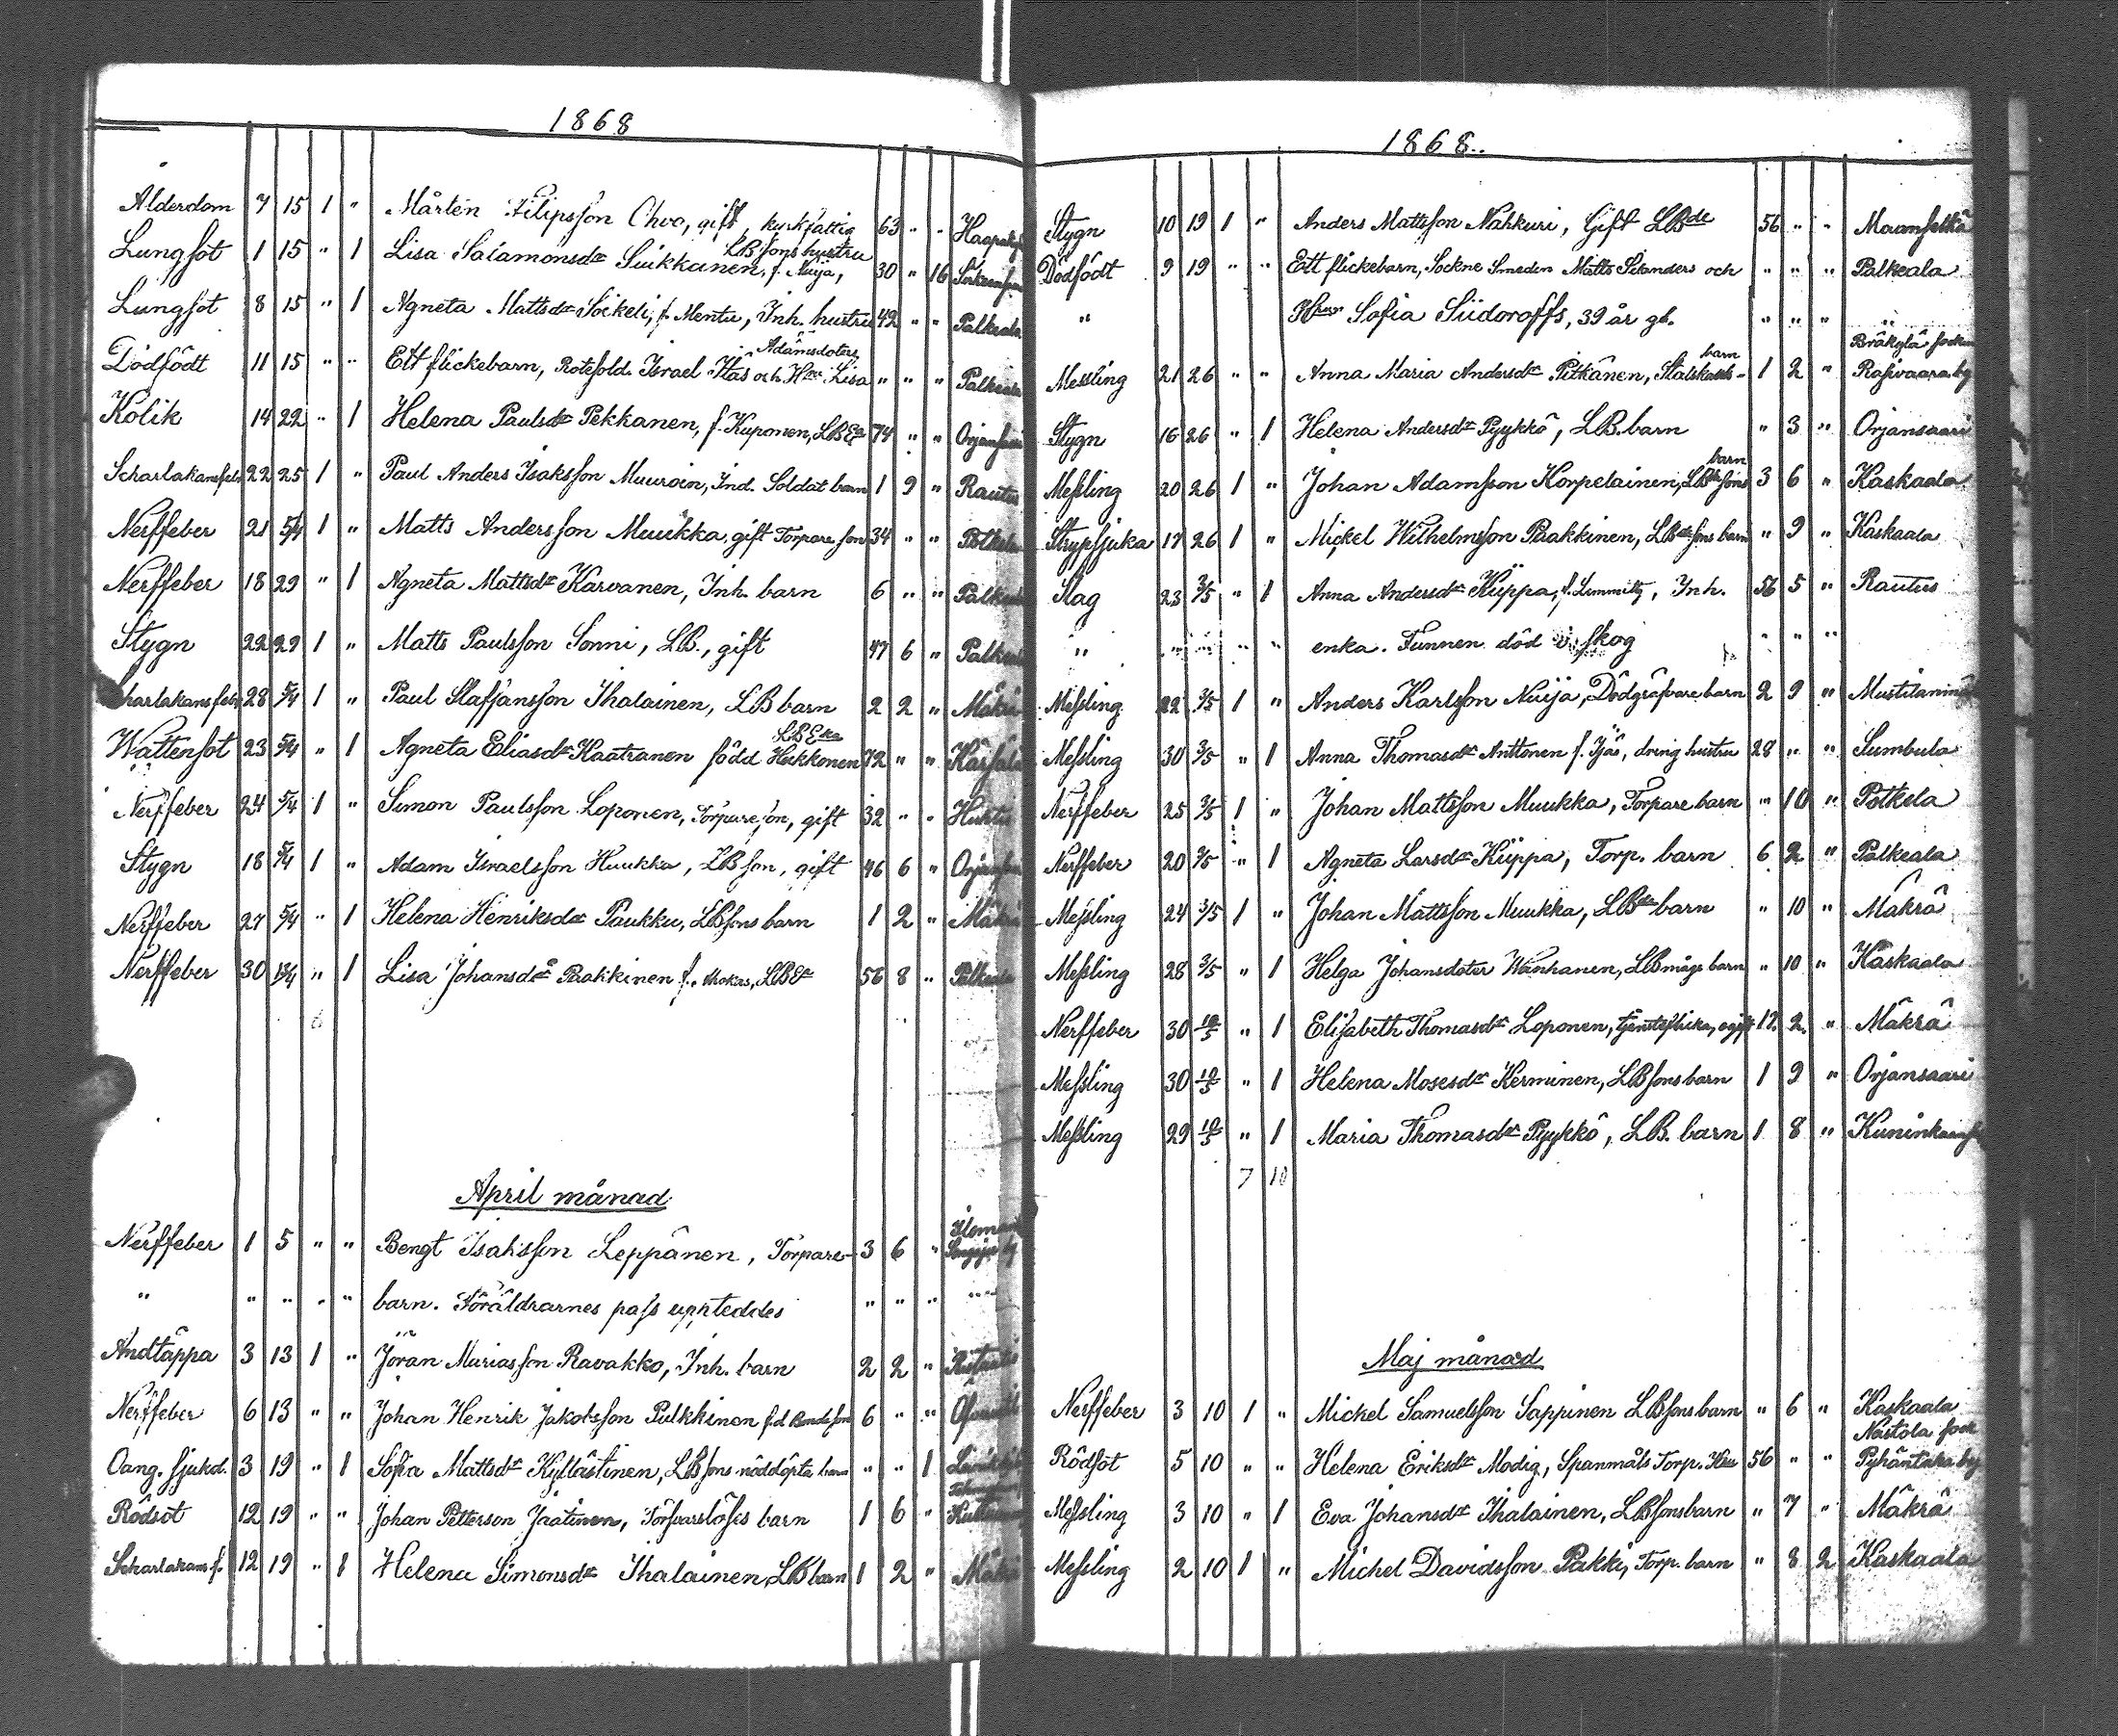 1868
Alderdom 7 15 1 " Mårten Filipsson Ohvo, gift, kyrkfattig 63 " "
Lungsot 1 15 " 1 Lisa Salamonsdr Suikkanen, f. Nuija, LBsons hustru 30 " 16
Lungsot 8 15 " 1 Agneta Mattsdr Sökeli, f. Mentu, Inh. hustru 42 " " Palkeala
Dödfödt 11 15 " " Ett flickebarn, Rotesold. Israel och Hru Lisa Adamsdoters " " " Palkeala
Kolik 14 22 " 1 Helena Paulsdr Pekkanen, f. Kuponen, LBEa 74 " " Orjansaari
Scharlakansfeber 22 25 1 " Paul Anders Isaksson Muuroin, Ind. Soldat barn 1 9 " Rautus
Nerffeber 21 5/4 1 " Matts Andersson Muukka, gift Torpare son 34 " " Potkela
Nerffeber 18 29 " 1 Agneta Mattsdr Karvanen, Inh. barn 6 " " Palkeala
Stygn 22 29 1 " Matts Paulsson Sonni, LB., gift 47 6 " Palkeala
Scharlakansfeber 28 5/4 1 " Paul Staffansson Ihalainen, LB barn 2 2 " Mäkrä
Wattensot 23 5/4 " 1 Agneta Eliasdr Kaatranen född Hukkonen LBEka 72 " "
Nerffeber 24 5/4 1 " Simon Paulsson Loponen, Torpare son, gift 32 " "
Stygn 18 5/4 1 " Adam Israelsson Huukka, LBson, gift 46 6 " Orjansaari
Nerffeber 27 5/4 " 1 Helena Henriksdr Paukku, LBsons barn 1 2 " Mäkrä
Nerffeber 30 13/4 " 1 Lisa Johansdr Paakkinen f. Mokas, LBEa 56 8 " Palkeala
April månad
Nerffeber 1 5 " " Bengt Isaksson Leppänen, Torpare- 3 6 "
" " " " " barn. Föräldrarnes pass uppteddes " " " "
Andtäppa 3 13 1 " Jöran Mariasson Ravakko, Inh. barn 2 2 "
Nerffeber 6 13 " " Johan Henrik Jakobsson Pulkkinen f.d. Bondeson 6 " "
Oang. sjukd. 3 19 " 1 Sofia Mattsdr Kyllästinen, LBsons nöddöpta barn " " 1
Rödsot 12 19 " " Johan Petterson Jaatinen, Försvarslöses barn 1 6 "
Scharlakans f. 12 19 " 1 Helena Simonsdr Ihalainen, LB barn 1 2 " Mäkrä
1868.
Stygn 10 19 1 " Anders Mattsson Nahkuri, Gift LBde 56 " " Maanselkä
Dödfödt 9 19 " " Ett flickebarn, Sockne Smeden Matts Sikanders och " " " Palkeala
" Hrus Sofia Siidoroffs, 39 år gl. " " " "
Bräkylä socken
Messling 21 26 " " Anna Maria Andersdr Pitkänen, Statskarls- barn 1 2 " Rasivaara by
Stygn 16 26 " 1 Helena Andersdr Pyykkö, LB. barn " 3 " Orjansaari
Messling 20 26 1 " Johan Adamsson Korpelainen, LBde sons barn 3 6 " Kaskaala
Strypsjuka 17 26 1 " Mickel Wilhelmsson Paakkinen, LBde sons barn " 9 " Kaskaala
Slag 23 3/5 " 1 Anna Andersdr Küppa, f. Lemmitty, Inh. 56 5 " Rautus
" " " " " enka. Funnen död i skog " " "
Messling 22 3/5 1 " Anders Karlsson Nuija, Dödgräfvare barn 2 9 "
Messling 30 3/5 " 1 Anna Thomasdr Anttonen f. Ijäs, dreng hustru 28 " " Sumbula
Nerffeber 25 3/5 1 " Johan Mattsson Muukka, Torpare barn " 10 " Potkela
Nerffeber 20 3/5 " 1 Agneta Larsdr Küppa, Torp. barn 6 2 " Palkeala
Messling 24 3/5 1 " Johan Mattsson Muukka, LBde barn " 10 " Mäkrä
Messling 28 3/5 " 1 Helga Johansdoter Wanhanen, LB mågs barn " 10 " Kaskaala
Nerffeber 30 10/5 " 1 Elisabeth Thomasdr Loponen, tjensteflicka, ogift 17 2 " Mäkrä
Messling 30 10/5 " 1 Helena Mosesdr Kerminen, LBsons barn 1 9 " Orjansaari
Messling 29 10/5 " 1 Maria Thomasdr Pyykkö, LB. barn 1 8 "
7 10
Maj månad
Nerffeber 3 10 1 " Mickel Samuelsson Sappinen LBsons barn " 6 " Kaskaala
Nastola sock
Rödsot 5 10 " " Helena Eriksdr Modig, Spanmåls Torp. Hru 56 " " Pyhäntaka by
Messling 3 10 " 1 Eva Johansdr Ihalainen, LBsonsbarn " 7 " Mäkrä
Messling 2 10 1 " Michel Davidsson Pakki, Torp. barn " 8 2 Kaskaala